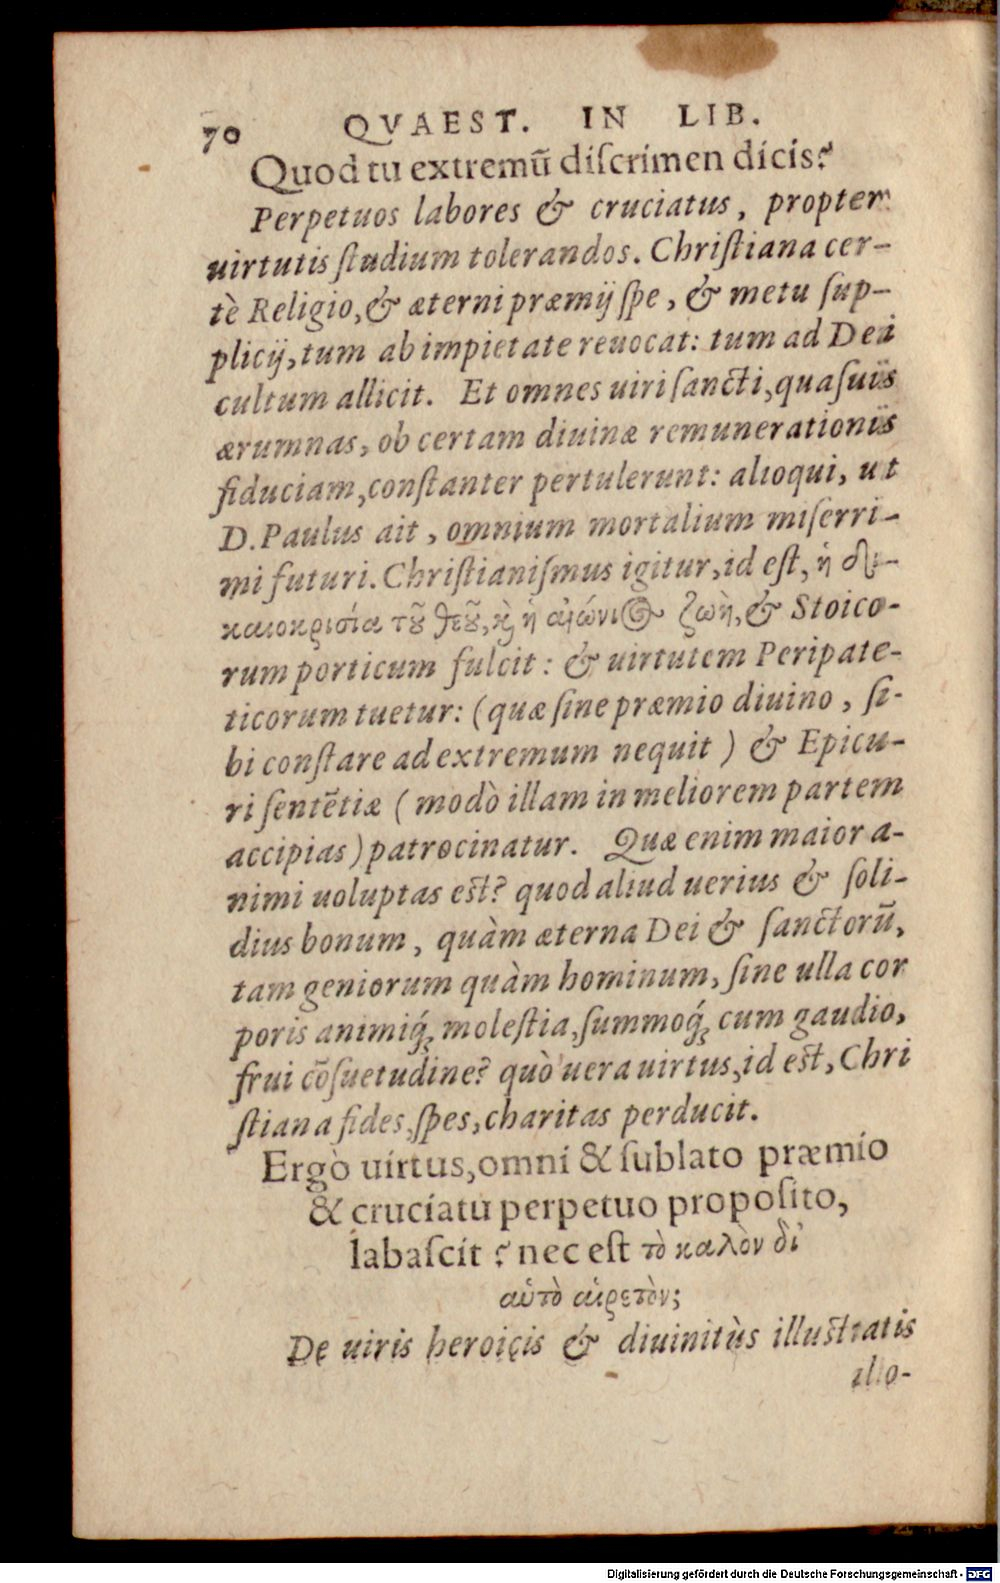 70 QVAEST. IN LIB.
Quod tu extremũ diſcrimen dicis?
Perpetuos labores & cruciatus, propter
uirtutis ſtudium tolerandos. Chriſtiana cer-
tè Religio, & æterni præmij ſpe, & metu ſup-
plicij, tum ab impietate reuocat: tum ad Dei
cultum allicit. Et omnes uiri ſancti, quaſuis
ærumnas, ob certam diuinæ remunerationis
fiduciam, conſtanter pertulerunt: alioqui, ut
D. Paulus ait, omnium mortalium miſerri-
mi futuri. Chriſtianiſmus igitur, id eſt, ἡ δι-
καιοκρισία τοῦ θεοῦ, καὶ ἡ αἰώνιος ζωὴ, & Stoico-
rum porticum fulcit: & uirtutem Peripate-
ticorum tuetur: (quæ ſine præmio diuino, ſi-
bi conſtare ad extremum nequit) & Epicu-
ri ſentẽtiæ (modò illam in meliorem partem
accipias) patrocinatur. Quæ enim maior a-
nimi uoluptas eſt? quod aliud uerius & ſoli-
dius bonum, quàm æterna Dei & ſanctorũ,
tam geniorum quàm hominum, ſine ulla cor
poris animiq́; moleſtia, ſummoq́; cum gaudio,
frui cõſuetudine? quò uera uirtus, id eſt, Chri
ſtiana fides, ſpes, charitas perducit.
Ergò uirtus, omni & ſublato præmio
& cruciatu perpetuo propoſito,
labaſcit? nec eſt τὸ καλὸν δι'
αὑτὸ αἱρετὸν;
De uiris heroicis & diuinitùs illuſtratis
illo-
Digitalisierung gefördert durch die Deutsche Forschungsgemeinschaft - DFG